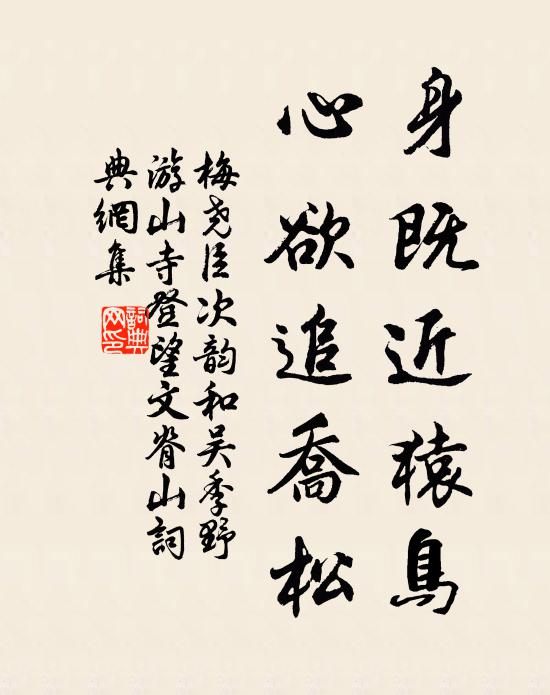 身既近猿鳥
心欲追喬松
梅尧臣次韵和吴季野
游山寺登望文脊山詞
典網集
詞典
网印